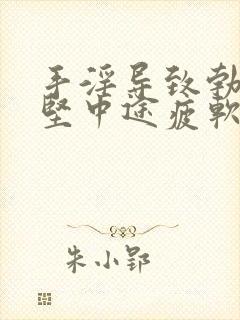 手淫导致勃
坚中途疲軟
朱小郢